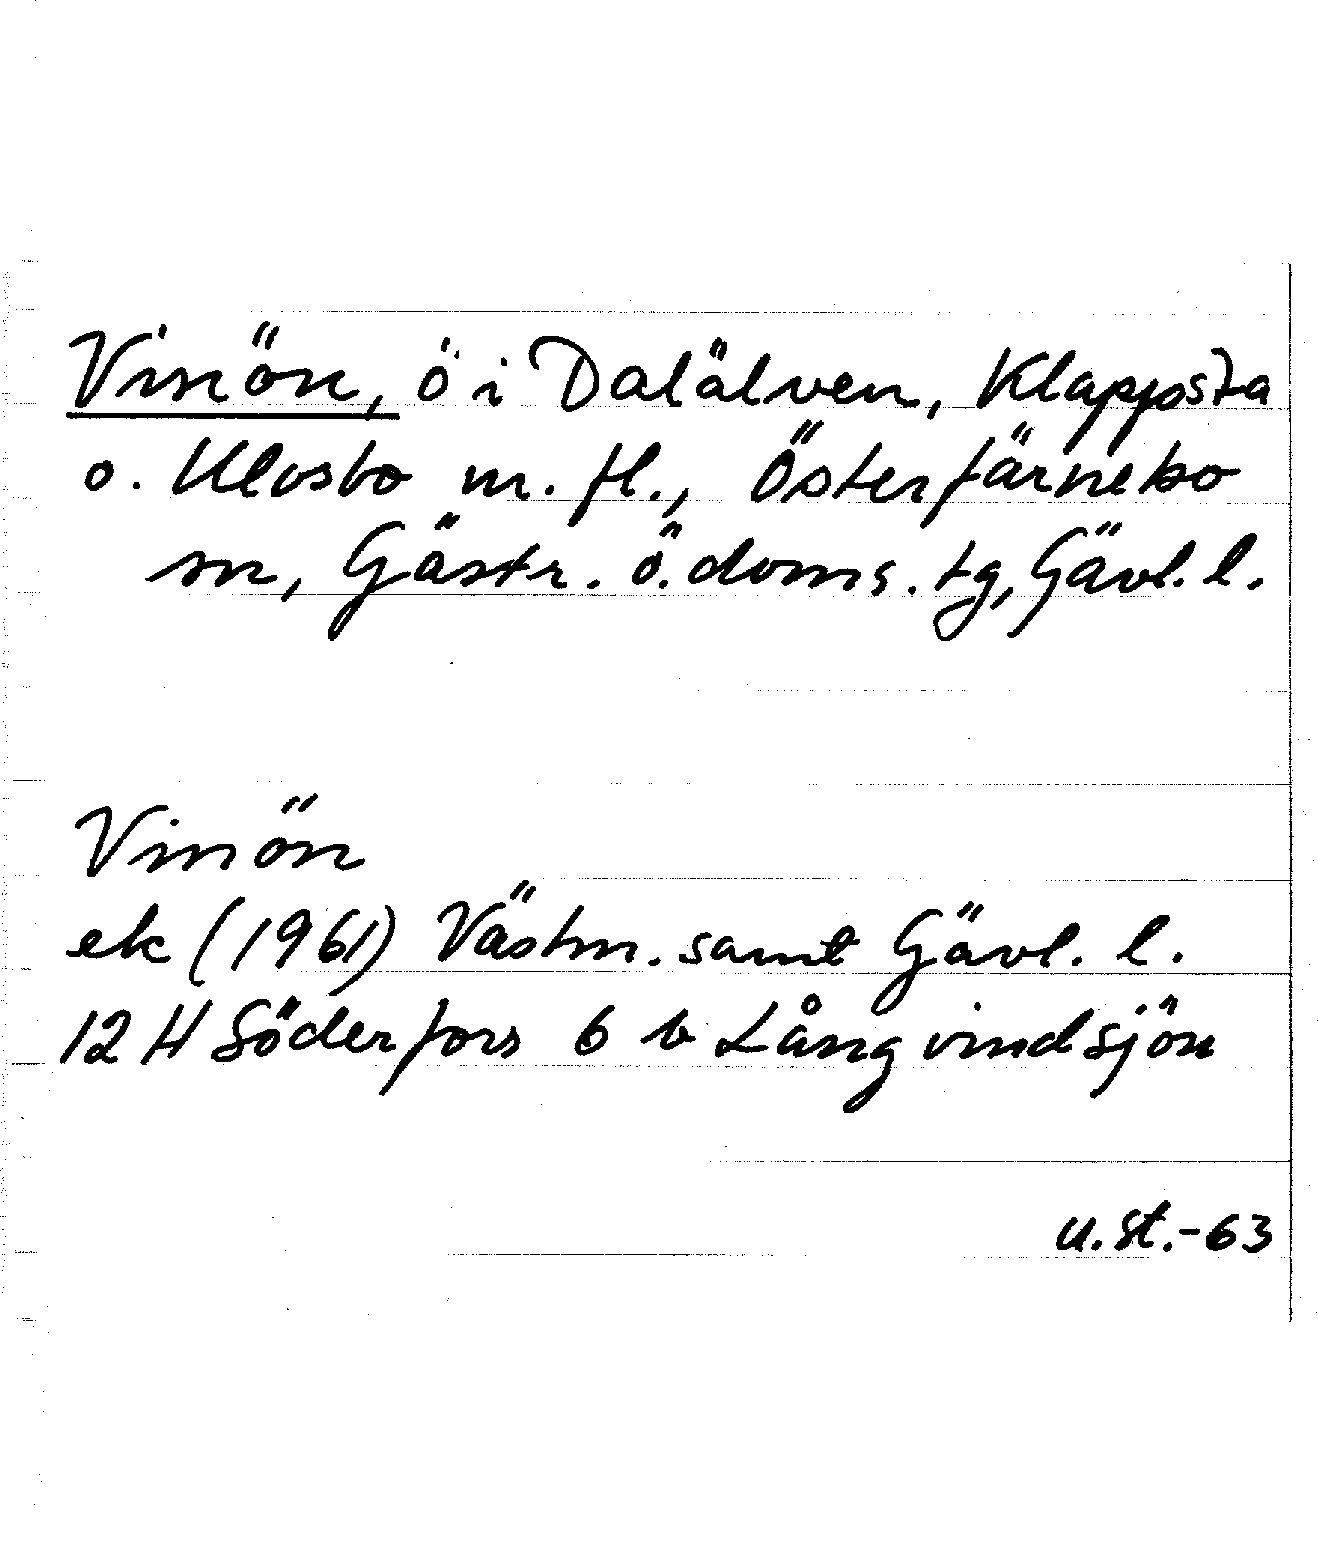 Vinön, ö i Dalälven, Klappsta
o. Ulvsbo m. fl., Österfärnebo
sn, Gästr. ö. doms. tg, Gävl. l.
Vinön
ek (1961) Västm. samt Gävl. l.
12 H Söderfors 6 b Långvindsjön
u. st. -63